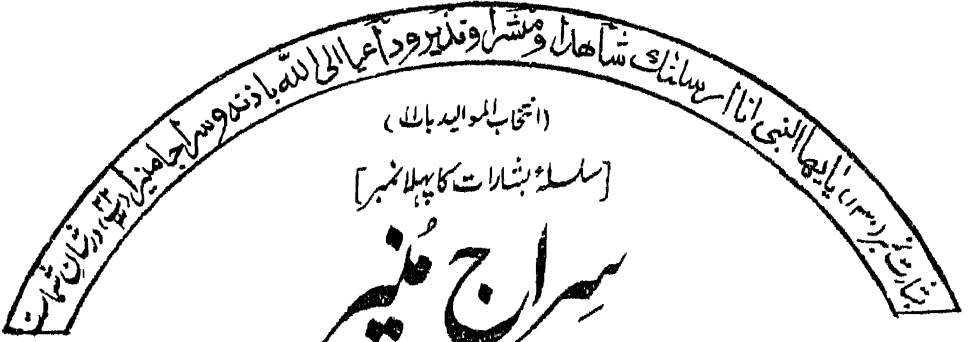 بشارت نمبر (١٣٠) یایھا النبی انا ارسلنٰک شاھدا و مبشرا و نذیرو داعیا الی اللہ باذنہ و سراجا منیرا (پ ٢٢) در شان
(انتخاب الموالید بارال)
[سلسلۂ بشارات کا پہلا نمبر]
سراج مُنیر